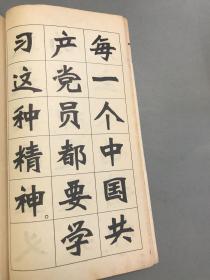 每一个中国共
产党员都要学
习这种精神。